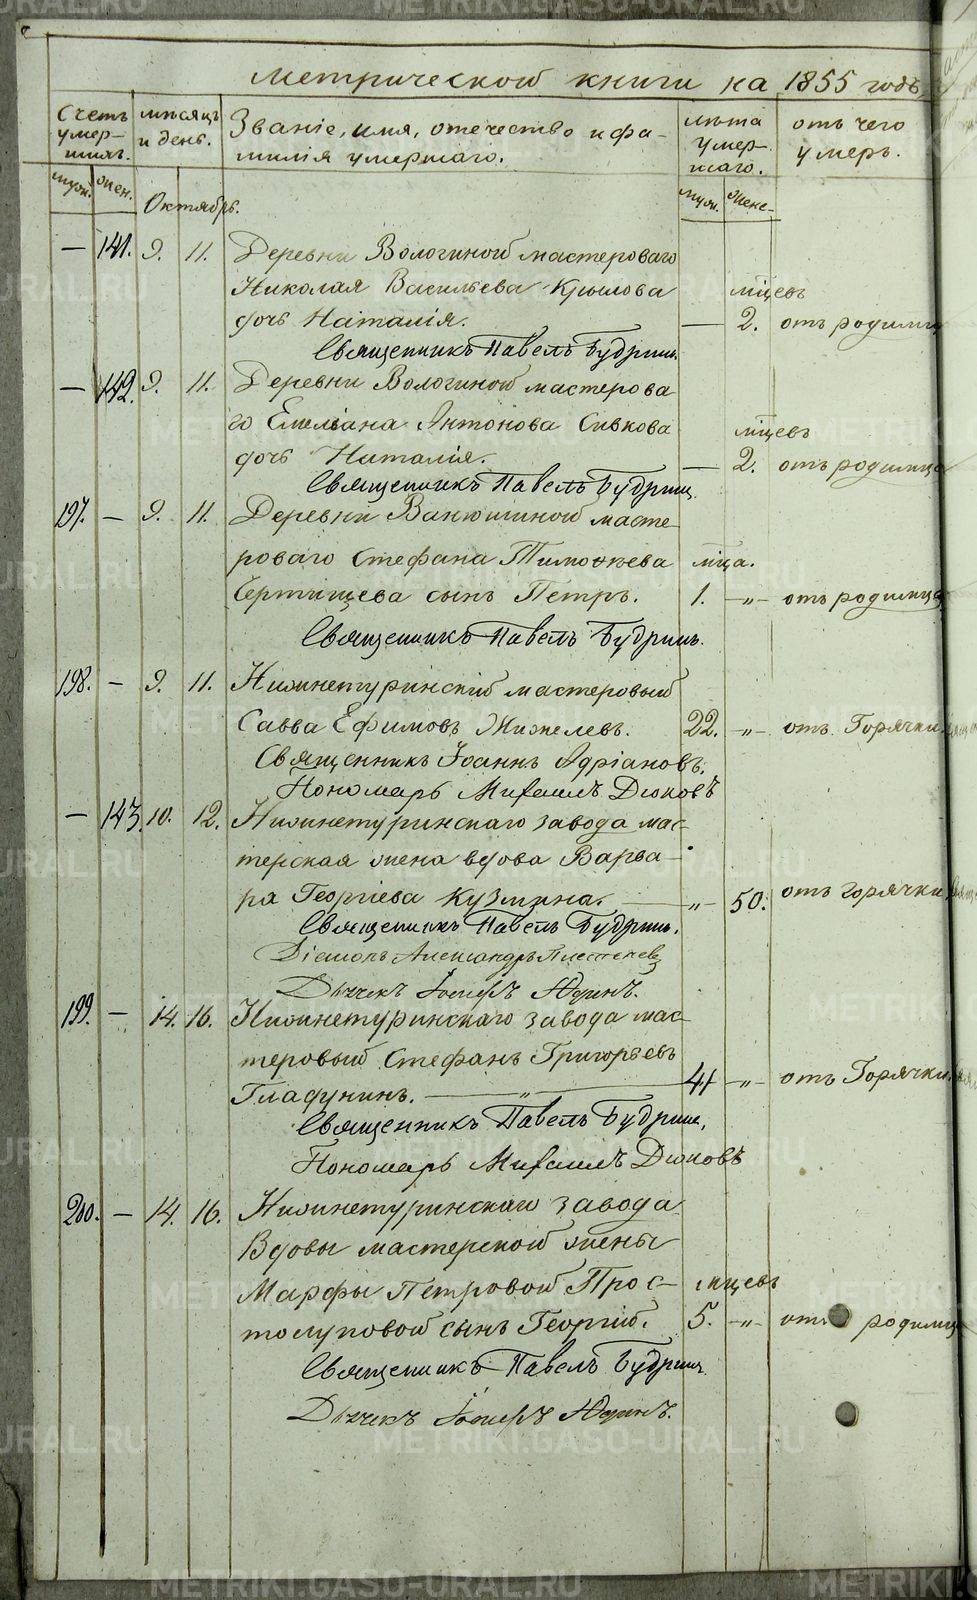 Метрической книги на 1855 годъ,
Счетъ умер-шихъ.
мѣсяцъ и день.
Званіе, имя, отечество и фа-
милія умершаго.
лѣта умер-шаго.
отъ чего умеръ.
муж. жен.
Октябрь.
муж. женс-
— 141. 9. 11. Деревни Вологиной мастероваго
Николая Васильева Крылова мцевъ
дочь Наталія. — 2. отъ родимца
Священникъ Павелъ Будринъ.
— 142. 9. 11. Деревни Вологиной мастерова
го Емеліана Антонова Сивкова мцевъ
дочь Наталія. — 2. отъ родимца
Священникъ Павелъ Будринъ
197. — 9. 11. Деревни Ванюшиной масте-
роваго Стефана Тимофеева мца.
сынъ Петръ. 1. -„- отъ родимца
Священникъ Павелъ Будринъ.
198. — 9. 11. Нижнетуринскій мастеровый
Савва Ефимовъ Жижелевъ. 22. -„- отъ Горячки
Священникъ Іоаннъ Адріановъ.
Пономарь Михаилъ Дюковъ
— 143. 10. 12. Нижнетуринскаго завода мас-
терская жена вдова Варва-
ра Георгіева Кузмина. -„- 50. отъ горячки
Священникъ Павелъ Будринъ.
Діаконъ Александръ
Дьячекъ Іосифъ Юдинъ.
199. — 14. 16. Нижнетуринскаго завода мас-
теровый Стефанъ Григорьевъ
Гладунинъ. — „ — 41 -„- отъ Горячки
Священникъ Павелъ Будринъ,
Пономарь Михаилъ Дюковъ
200. — 14. 16. Нижнетуринскаго завода
Вдовы мастерской жены
Марфы Петровой Прос- мцевъ
толуповой сынъ Георгій. 5. -„- отъ родимца
Священникъ Павелъ Будринъ
Дьячекъ Іосифъ Юдинъ.
METRIKI.GASO-URAL.RU